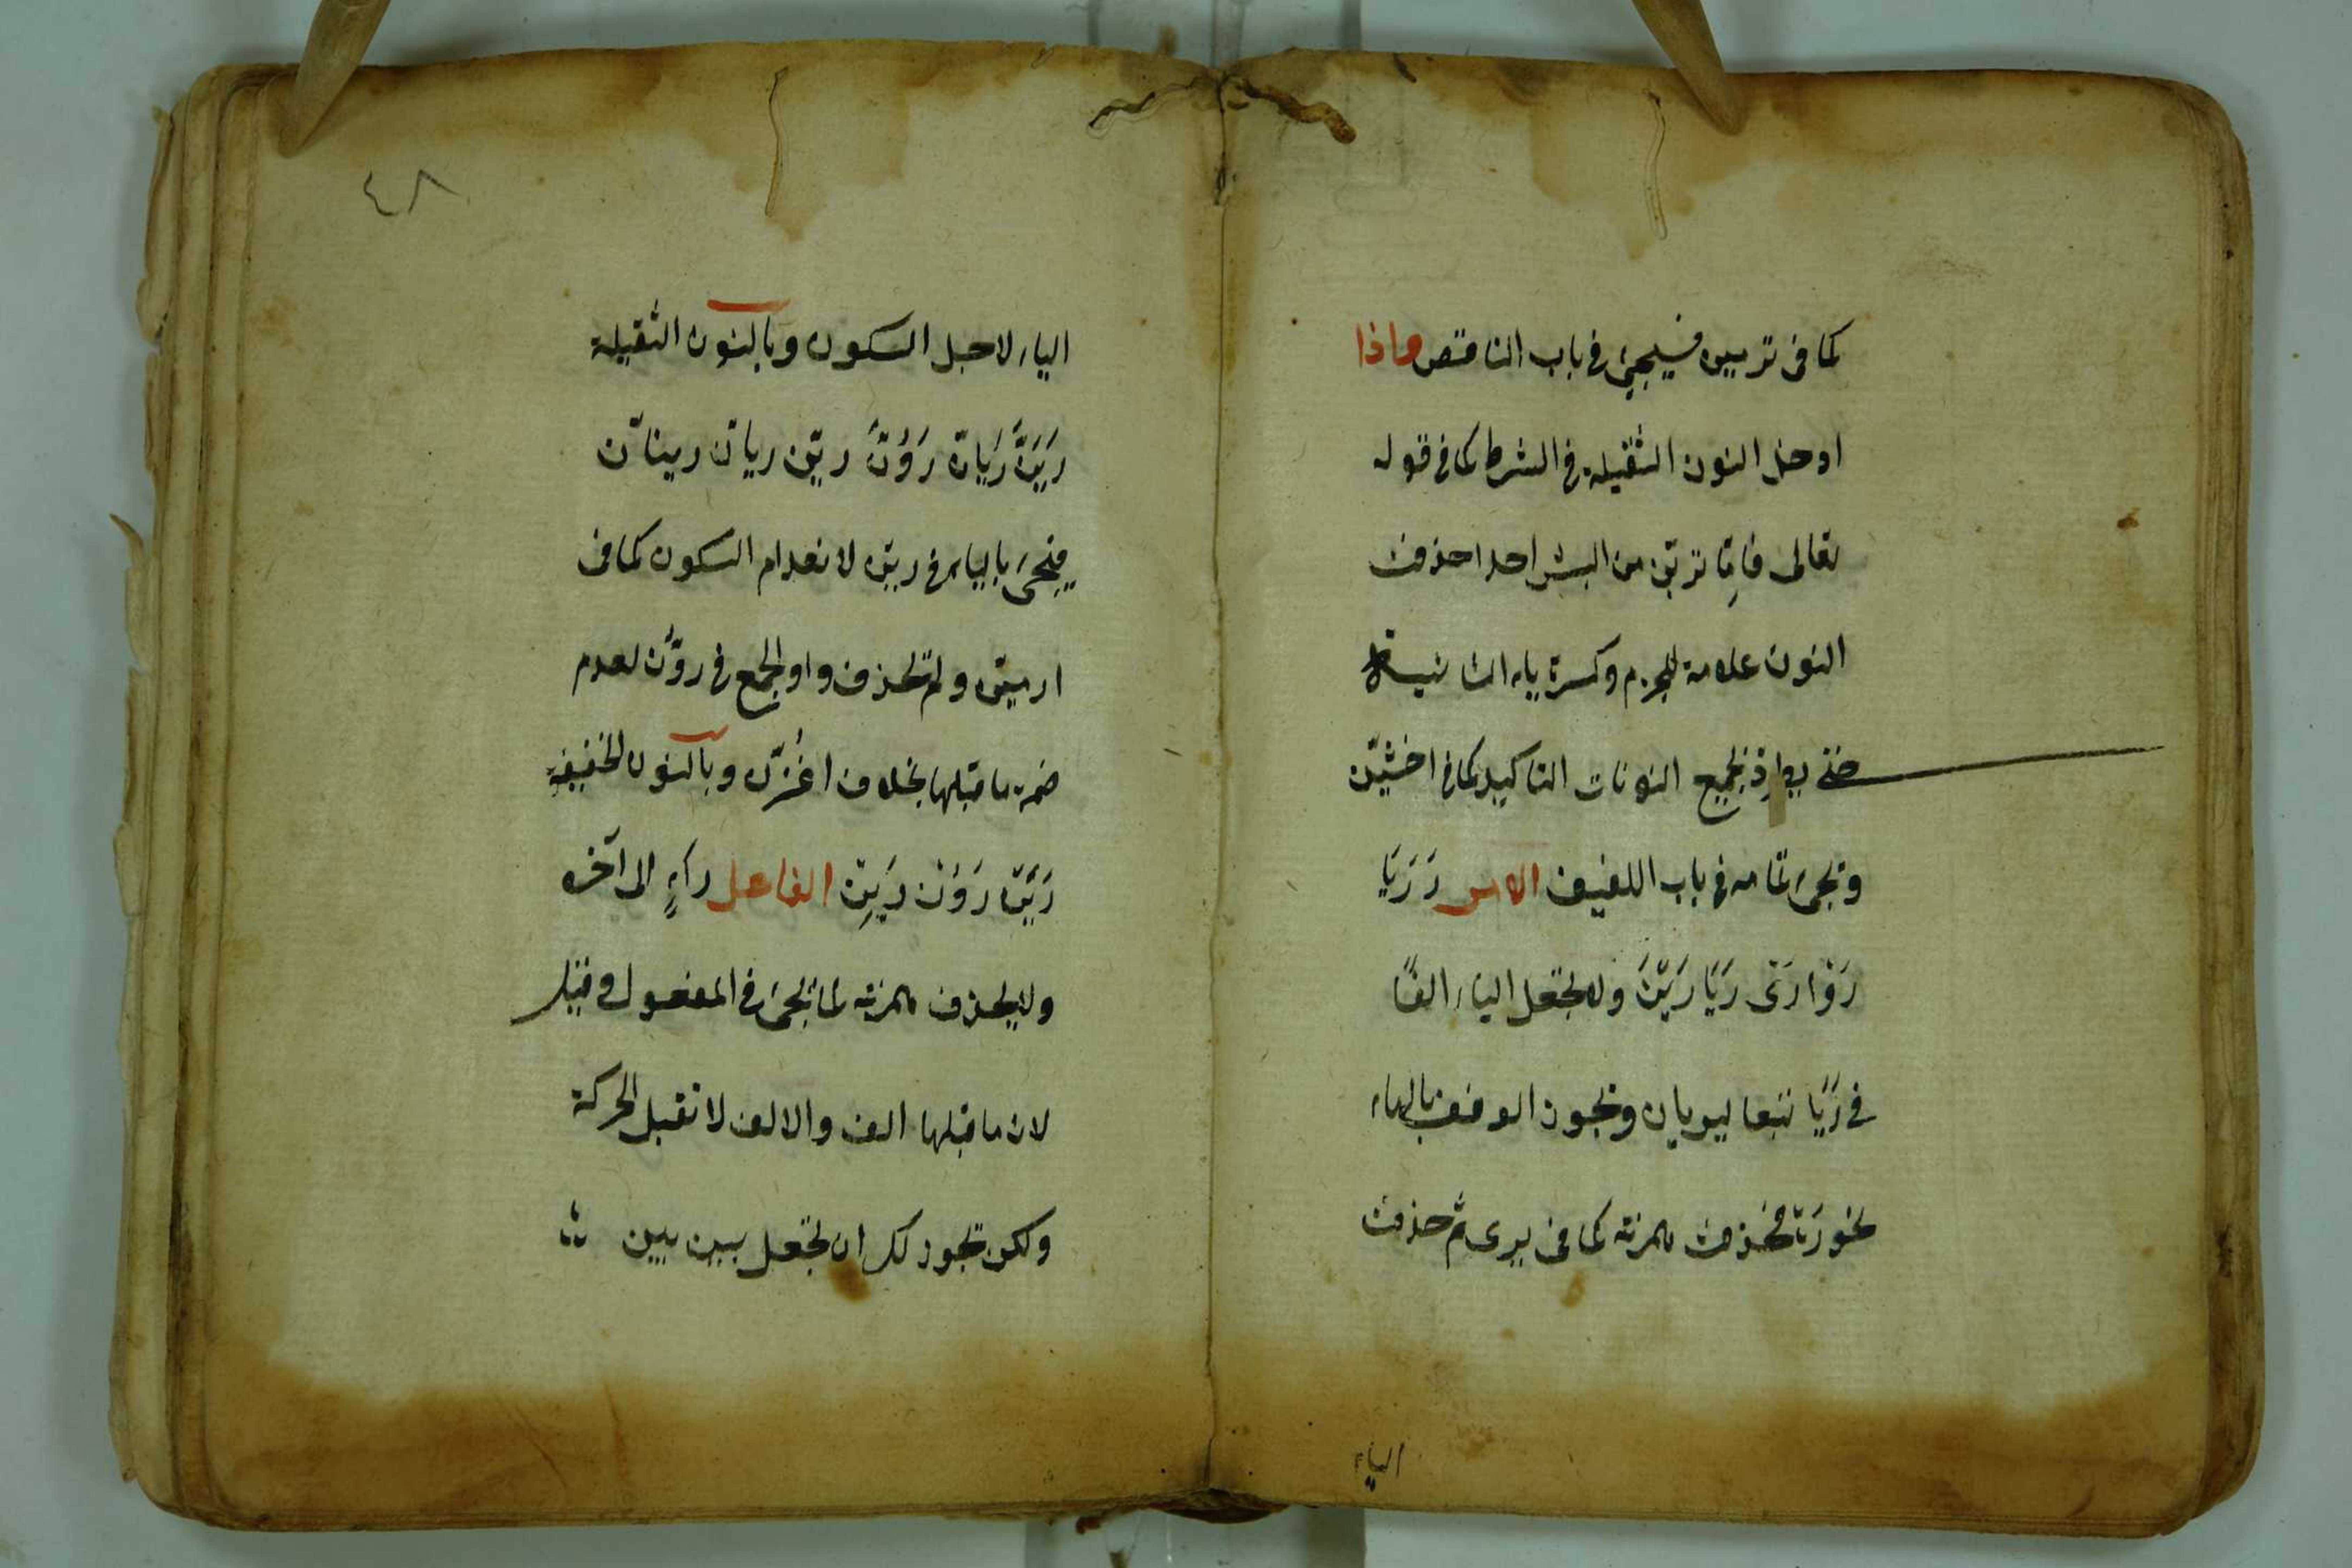 كما فى ترميين فسيجئ فى باب الناقص واذا
ادخل النون الثقيلة فى الشرط كما فى قوله
تعالى فاِمّا تريّن من البشر احدا حذفت
النون علامة للجزم وكسرة ياء التانيث
حتى يطرد بجميع النونات التاكيد كما فى اخشيّن
وتجئ تمامه فى باب اللفيف الامر رَ رَيَا
رَوْا رَىْ رَيَا رَيْنَ ولا تجعل الياء الفًا
فى رَيَا تبعا ليريان وتجوز الوقف بالهاء
نحو رَهْ فحذفت همزته كما فى يرى ثم حذفت
الياء
٤٨
الياء لاجل السكون وبالنون الثقيلة
رَيَنَّ رَيَانّ رَوُنَّ ريِنّ ريانّ رينانّ
فيجئ بالياء فى ريَنّ لانعدام السكون كما فى
ارميَنّ ولم تحذف واو الجمع فى روُنّ لعدم
ضمة ما قبلها بخلاف اغزُنّ وبالنون الخفيفة
رَيَنْ رَوُنْ رَيِنْ الفاعل راءٍ الى آخره
ولا يحذف همزته لما تجئ فى المفعول وقيل
لان ما قبلها الف والالف لا تقبل الحركة
ولكن تجوز لك ان تجعل بين بين